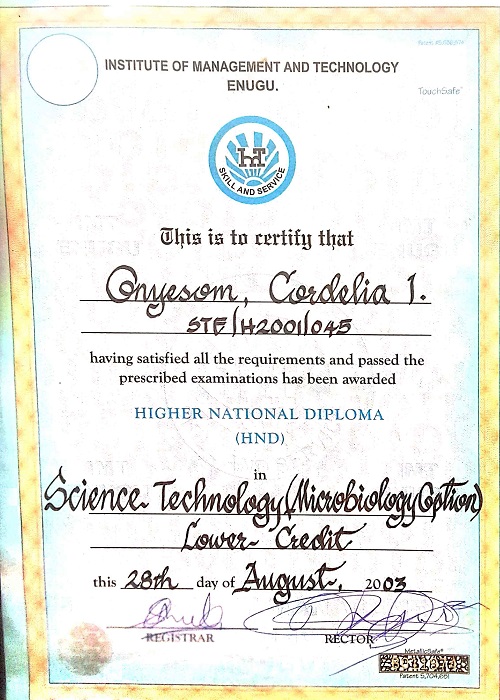 INSTITUTE OF MANAGEMENT AND TECHNOLOGY
ENUGU.
TouchSafe
SKILL AND SERVICE
This is to certify that
Onyesom, Cordelia I.
STF/H2001/045
having satisfied all the requirements and passed the
prescribed examinations has been awarded
HIGHER NATIONAL DIPLOMA
(HND)
in
Science Technology (Microbiology Option)
Lower Credit
this 28th day of August, 2003
REGISTRAR
RECTOR
MetallicSafe
Patent 5,704,651